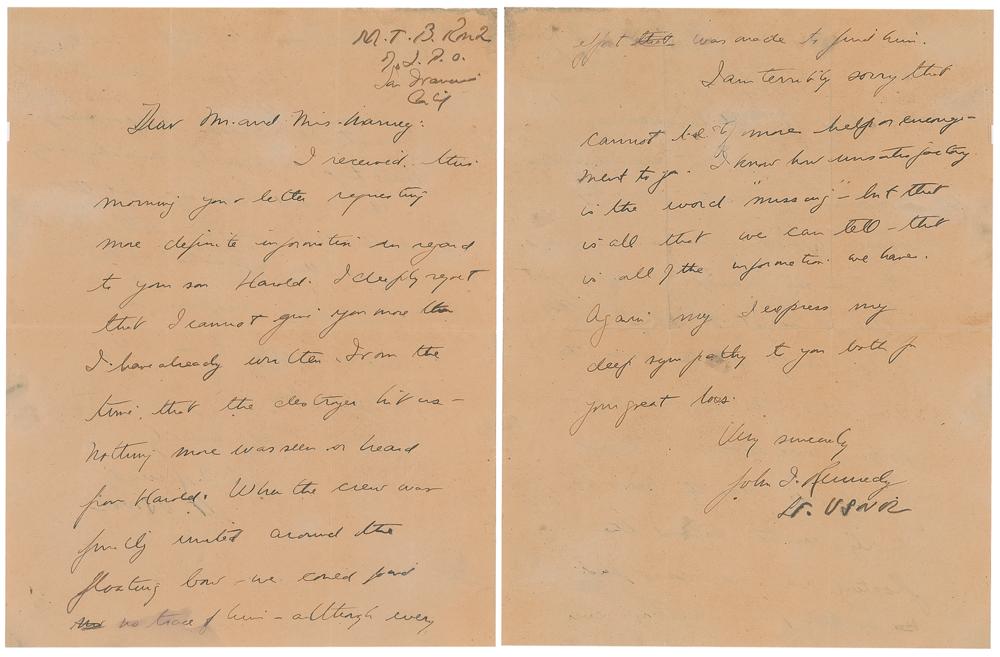 M.T.B. Ron 2
F.P.O.
San Francisco
Calif
Dear Mr. and Mrs. Marney:
I received this
morning your letter requesting
more definite information in regard
to your son Harold. I deeply regret
that I cannot give you more than
I have already written. From the
time that the destroyer hit us -
nothing more was seen or heard
from Harold. When the crew was
finally united around the
floating bow - we could find
no trace of him - although every
effort was made to find him.
I am terribly sorry that
cannot be of more help or encourage-
ment to you. I know how unsatisfactory
is the word "missing" - but that
is all that we can tell - that
is all of the information we have.
Again my I express my
deep sympathy to you both for
your great loss.
Very sincerely
John F. Kennedy
Lt. USNR